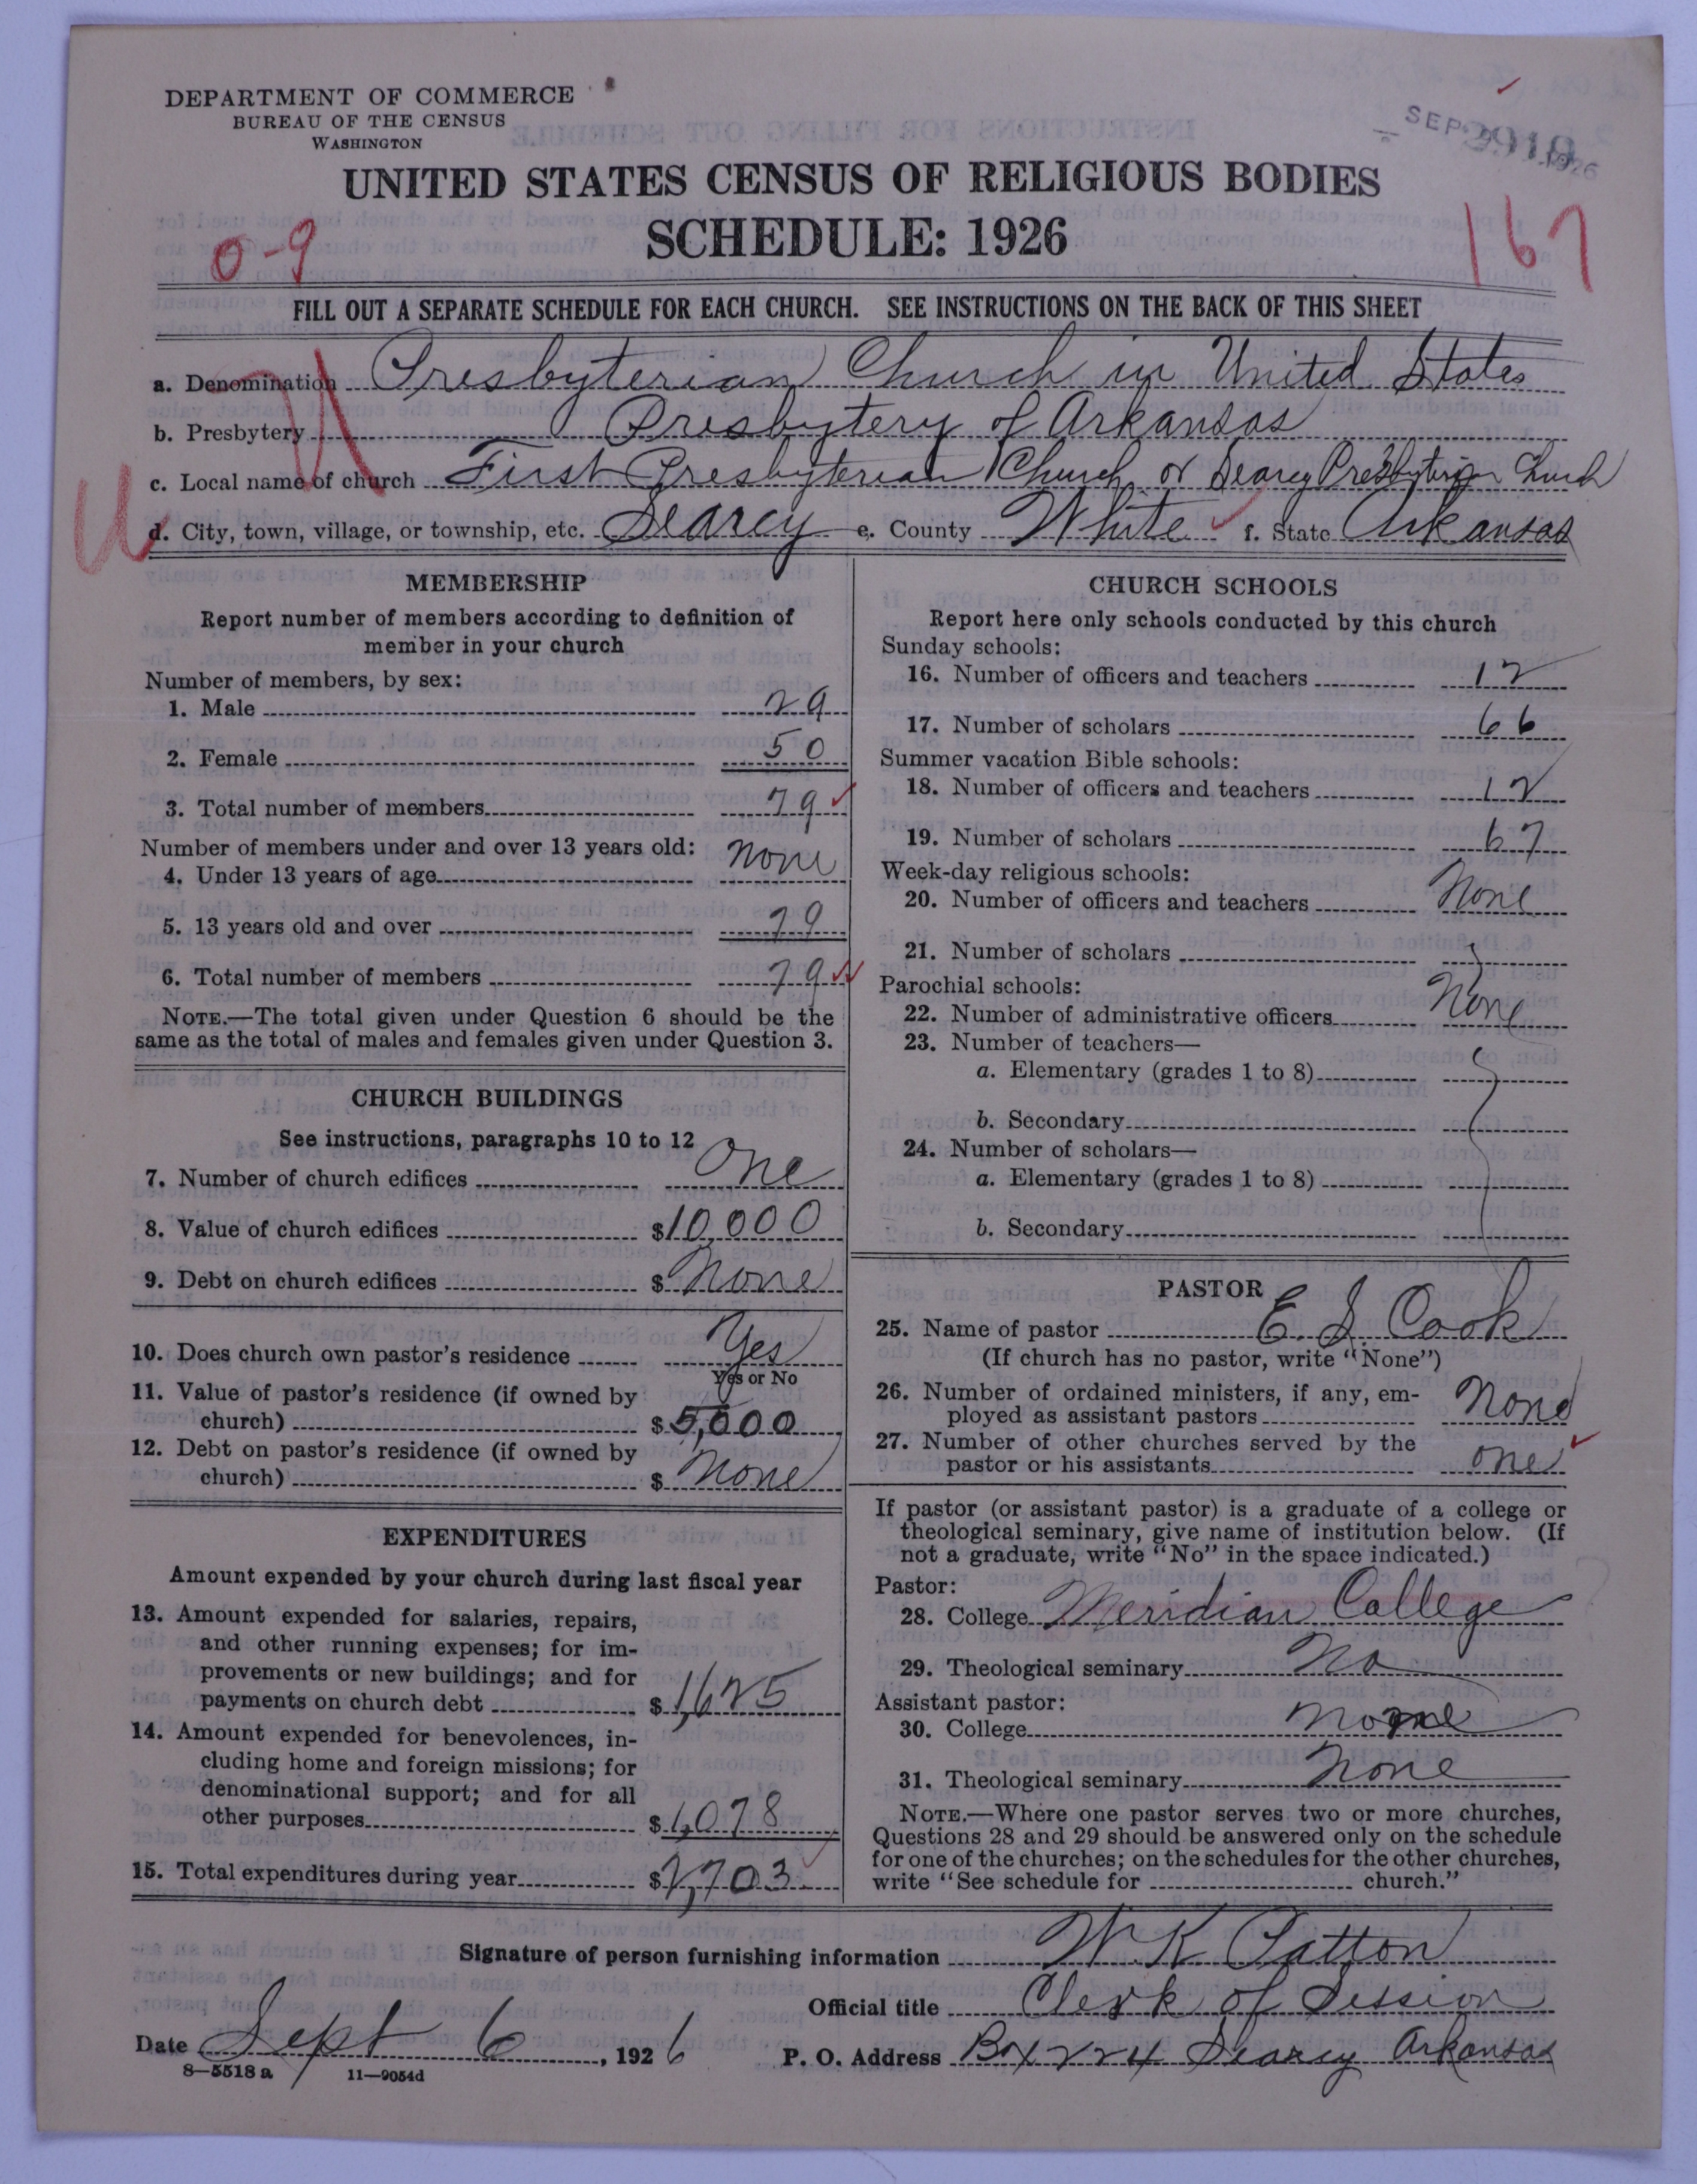 DEPARTMENT OF COMMERCE
BUREAU OF THE CENSUS
WASHINGTON
SEP 1926
2910
UNITED STATES CENSUS OF RELIGIOUS BODIES
SCHEDULE: 1926
0-9
167
FILL OUT A SEPARATE SCHEDULE FOR EACH CHURCH. SEE INSTRUCTIONS ON THE BACK OF THIS SHEET
a. Denomination Presbyterian Church in United States
b. Presbytery Presbytery of Arkansas
c. Local name of church First Presbyterian Church or Searcy Presbyterian Church
d. City, town, village, or township, etc. Searcy e. County White f. State Arkansas
MEMBERSHIP
Report number of members according to definition of
member in your church
Number of members, by sex:
1. Male 29
2. Female 50
3. Total number of members 79
Number of members under and over 13 years old:
4. Under 13 years of age none
5. 13 years old and over 79
6. Total number of members 79
NOTE.—The total given under Question 6 should be the
same as the total of males and females given under Question 3.
CHURCH BUILDINGS
See instructions, paragraphs 10 to 12
7. Number of church edifices One
8. Value of church edifices $10,000
9. Debt on church edifices $ None
10. Does church own pastor's residence Yes
Yes or No
11. Value of pastor's residence (if owned by
church) $5,000
12. Debt on pastor's residence (if owned by
church) $ None
EXPENDITURES
Amount expended by your church during last fiscal year
13. Amount expended for salaries, repairs,
and other running expenses; for im-
provements or new buildings; and for
payments on church debt $1,625
14. Amount expended for benevolences, in-
cluding home and foreign missions; for
denominational support; and for all
other purposes $1,078
15. Total expenditures during year $2,703
CHURCH SCHOOLS
Report here only schools conducted by this church
Sunday schools:
16. Number of officers and teachers 12
17. Number of scholars 66
Summer vacation Bible schools:
18. Number of officers and teachers 12
19. Number of scholars 67
Week-day religious schools:
20. Number of officers and teachers None
21. Number of scholars
Parochial schools:
22. Number of administrative officers None
23. Number of teachers—
a. Elementary (grades 1 to 8)
b. Secondary
24. Number of scholars—
a. Elementary (grades 1 to 8)
b. Secondary
PASTOR
25. Name of pastor E. S. Cook
(If church has no pastor, write "None")
26. Number of ordained ministers, if any, em-
ployed as assistant pastors None
27. Number of other churches served by the
pastor or his assistants one
If pastor (or assistant pastor) is a graduate of a college or
theological seminary, give name of institution below. (If
not a graduate, write "No" in the space indicated.)
Pastor:
28. College Meridian College
29. Theological seminary No
Assistant pastor:
30. College none
31. Theological seminary None
NOTE.—Where one pastor serves two or more churches,
Questions 28 and 29 should be answered only on the schedule
for one of the churches; on the schedules for the other churches,
write "See schedule for church."
Signature of person furnishing information W. K. Patton
Official title Clerk of Session
Date Sept 6, 1926 P. O. Address Box 224 Searcy Arkansas
8—5518a 11—9054d